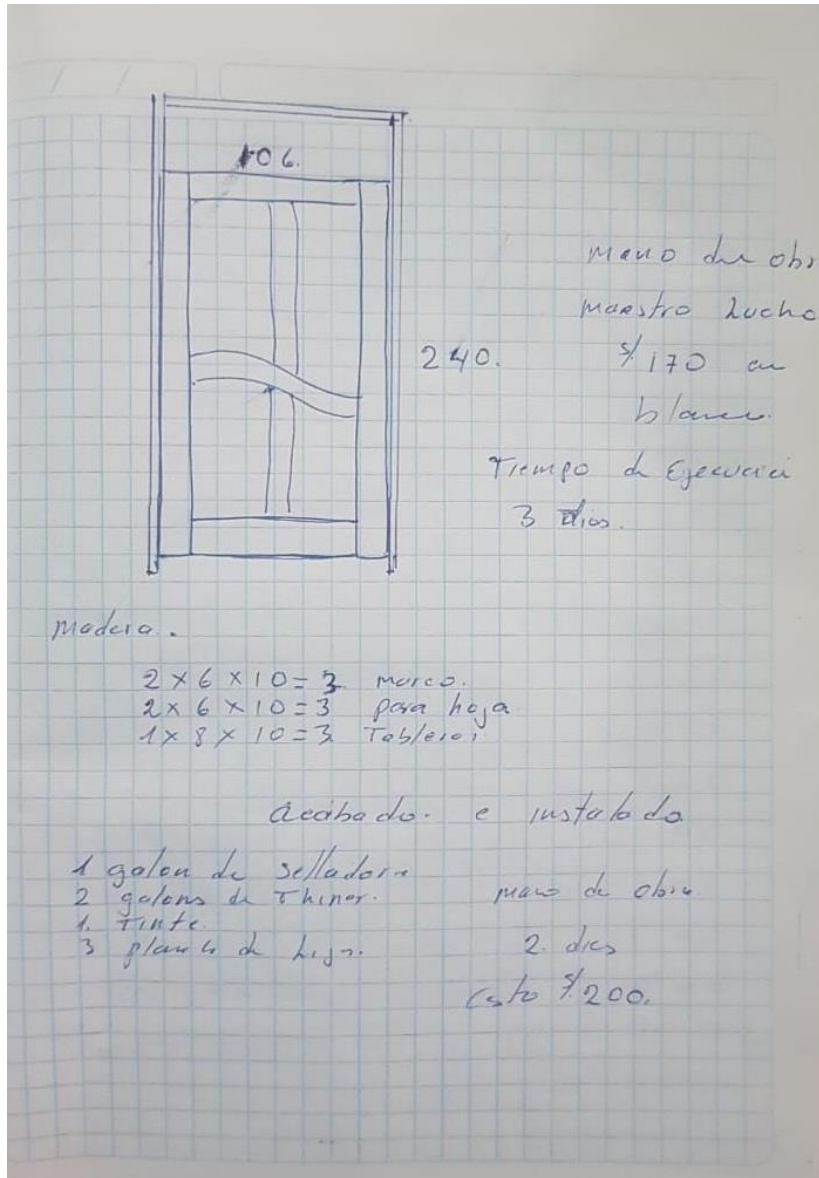 106.
mano de obr
maestro Lucho
240. S/ 170 en
blanco.
Tiempo de Ejecucić
3 dias.
madera.
2 x 6 x 10 = 3 marco.
2 x 6 x 10 = 3 para hoja
1 x 8 x 10 = 3 Tableros
acabado. e instalado
1 galon de selladora
2 galons de Thiner. mano de obra
1. Tinte.
3 planch de lija. 2. dias
Costo S/. 200.